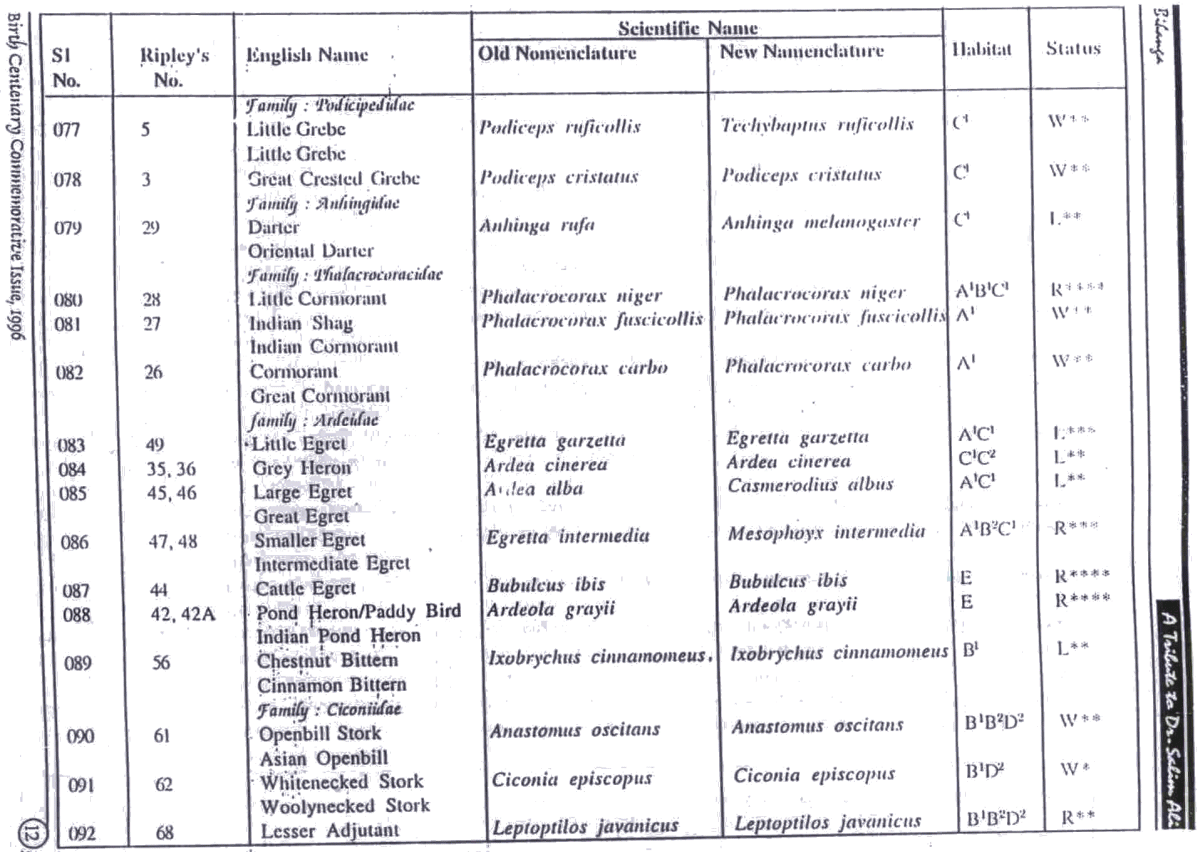 Bihanga
Scientific Name
Sl No. Ripley's No. English Name Old Nomenclature New Namenclature Habitat Status
Family : Podicipedidae
077 5 Little Grebe Podiceps ruficollis Techybaptus ruficollis C¹ W**
Little Grebe
078 3 Great Crested Grebe Podiceps cristatus Podiceps cristatus C¹ W**
Family : Anhingidae
079 29 Darter Anhinga rufa Anhinga melanogaster C¹ L**
Oriental Darter
Family : Phalacrocoracidae
080 28 Little Cormorant Phalacrocorax niger Phalacrocorax niger A¹B¹C¹ R****
081 27 Indian Shag Phalacrocorax fuscicollis Phalacrocorax fuscicollis A¹ W**
Indian Cormorant
082 26 Cormorant Phalacrocorax carbo Phalacrocorax carbo A¹ W**
Great Cormorant
family : Ardeidae
083 49 Little Egret Egretta garzetta Egretta garzetta A¹C¹ L***
084 35, 36 Grey Heron Ardea cinerea Ardea cinerea C¹C² L**
085 45, 46 Large Egret Ardea alba Casmerodius albus A¹C¹ L**
Great Egret
086 47, 48 Smaller Egret Egretta intermedia Mesophoyx intermedia A¹B²C¹ R***
Intermediate Egret
087 44 Cattle Egret Bubulcus ibis Bubulcus ibis E R****
088 42, 42A Pond Heron/Paddy Bird Ardeola grayii Ardeola grayii E R****
Indian Pond Heron
089 56 Chestnut Bittern Ixobrychus cinnamomeus. Ixobrychus cinnamomeus B¹ L**
Cinnamon Bittern
Family : Ciconiidae
090 61 Openbill Stork Anastomus oscitans Anastomus oscitans B¹B²D² W**
Asian Openbill
091 62 Whitenecked Stork Ciconia episcopus Ciconia episcopus B¹D² W*
Woolynecked Stork
092 68 Lesser Adjutant Leptoptilos javanicus Leptoptilos javanicus B¹B²D² R**
Birth Centenary Commemorative Issue, 1996
12
A Tribute to Dr. Salim Ali